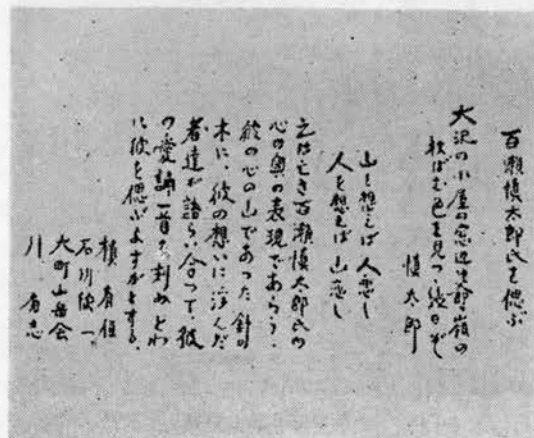 百瀬慎太郎氏を偲ぶ
大沢の小屋の窓辺ゆ
秋ばむ色を見つ
慎太郎
山を想えば 人恋し
人を想えば 山恋し
之は亡き百瀬慎太郎氏の
心の奥の表現であらう、
彼の心の山であった 針の
木に、彼の想いに
者達が語らい合って、彼
の愛誦一首を刻み とわ
に彼を偲ぶよすがとする、
石川
大町山岳会
有志